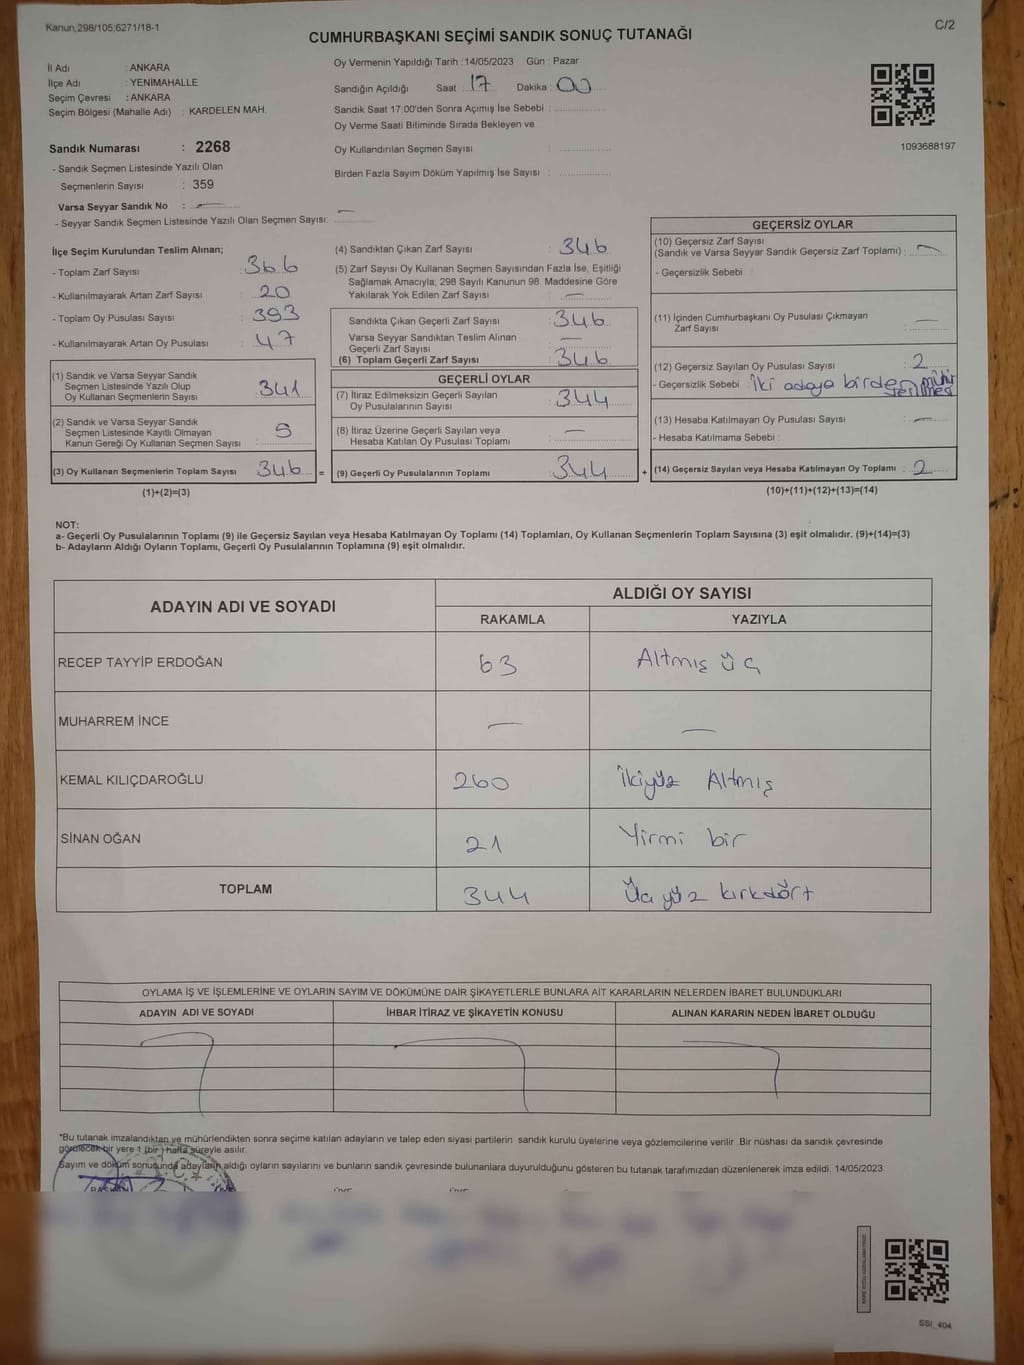 Kanun.298/105;6271/18-1
C/2
CUMHURBAŞKANI SEÇİMİ SANDIK SONUÇ TUTANAĞI
İl Adı : ANKARA
İlçe Adı : YENİMAHALLE
Seçim Çevresi : ANKARA
Seçim Bölgesi (Mahalle Adı) : KARDELEN MAH.
Sandık Numarası : 2268
- Sandık Seçmen Listesinde Yazılı Olan
Seçmenlerin Sayısı : 359
Varsa Seyyar Sandık No : —
- Seyyar Sandık Seçmen Listesinde Yazılı Olan Seçmen Sayısı: —
Oy Vermenin Yapıldığı Tarih :14/05/2023 Gün : Pazar
Sandığın Açıldığı Saat : 17 Dakika : 00
Sandık Saat 17:00'den Sonra Açımış İse Sebebi :
Oy Verme Saati Bitiminde Sırada Bekleyen ve
Oy Kullandırılan Seçmen Sayısı :
Birden Fazla Sayım Döküm Yapılmış İse Sayısı :
1093688197
İlçe Seçim Kurulundan Teslim Alınan;
- Toplam Zarf Sayısı : 366
- Kullanılmayarak Artan Zarf Sayısı : 20
- Toplam Oy Pusulası Sayısı : 393
- Kullanılmayarak Artan Oy Pusulası : 47
(1) Sandık ve Varsa Seyyar Sandık
Seçmen Listesinde Yazılı Olup
Oy Kullanan Seçmenlerin Sayısı : 341
(2) Sandık ve Varsa Seyyar Sandık
Seçmen Listesinde Kayıtlı Olmayan
Kanun Gereği Oy Kullanan Seçmen Sayısı : 5
(3) Oy Kullanan Seçmenlerin Toplam Sayısı : 346 =
(1)+(2)=(3)
(4) Sandıktan Çıkan Zarf Sayısı : 346
(5) Zarf Sayısı Oy Kullanan Seçmen Sayısından Fazla İse, Eşitliği
Sağlamak Amacıyla; 298 Sayılı Kanunun 98. Maddesine Göre
Yakılarak Yok Edilen Zarf Sayısı : —
Sandıkta Çıkan Geçerli Zarf Sayısı : 346
Varsa Seyyar Sandıktan Teslim Alınan
Geçerli Zarf Sayısı : —
(6) Toplam Geçerli Zarf Sayısı : 346
GEÇERLİ OYLAR
(7) İtiraz Edilmeksizin Geçerli Sayılan
Oy Pusulalarının Sayısı : 344
(8) İtiraz Üzerine Geçerli Sayılan veya
Hesaba Katılan Oy Pusulası Toplamı : —
(9) Geçerli Oy Pusulalarının Toplamı : 344 +
GEÇERSİZ OYLAR
(10) Geçersiz Zarf Sayısı
(Sandık ve Varsa Seyyar Sandık Geçersiz Zarf Toplamı) : —
- Geçersizlik Sebebi :
(11) İçinden Cumhurbaşkanı Oy Pusulası Çıkmayan
Zarf Sayısı : —
(12) Geçersiz Sayılan Oy Pusulası Sayısı : 2
- Geçersizlik Sebebi : İki adaya birden mühür
(13) Hesaba Katılmayan Oy Pusulası Sayısı : —
- Hesaba Katılmama Sebebi :
(14) Geçersiz Sayılan veya Hesaba Katılmayan Oy Toplamı : 2
(10)+(11)+(12)+(13)=(14)
NOT:
a- Geçerli Oy Pusulalarının Toplamı (9) ile Geçersiz Sayılan veya Hesaba Katılmayan Oy Toplamı (14) Toplamları, Oy Kullanan Seçmenlerin Toplam Sayısına (3) eşit olmalıdır. (9)+(14)=(3)
b- Adayların Aldığı Oyların Toplamı, Geçerli Oy Pusulalarının Toplamına (9) eşit olmalıdır.
ADAYIN ADI VE SOYADI
ALDIĞI OY SAYISI
RAKAMLA YAZIYLA
RECEP TAYYİP ERDOĞAN 63 Altmış üç
MUHARREM İNCE — —
KEMAL KILIÇDAROĞLU 260 İkiyüz Altmış
SİNAN OĞAN 21 Yirmi bir
TOPLAM 344 Üç yüz kırkdört
OYLAMA İŞ VE İŞLEMLERİNE VE OYLARIN SAYIM VE DÖKÜMÜNE DAİR ŞİKAYETLERLE BUNLARA AİT KARARLARIN NELERDEN İBARET BULUNDUKLARI
ADAYIN ADI VE SOYADI İHBAR İTİRAZ VE ŞİKAYETİN KONUSU ALINAN KARARIN NEDEN İBARET OLDUĞU
*Bu tutanak imzalandıktan ve mühürlendikten sonra seçime katılan adayların ve talep eden siyasi partilerin sandık kurulu üyelerine veya gözlemcilerine verilir .Bir nüshası da sandık çevresinde
görülecek bir yere 1 (bir ) hafta süreyle asılır.
Sayım ve döküm sonuşunda adayların aldığı oyların sayılarını ve bunların sandık çevresinde bulunanlara duyurulduğunu gösteren bu tutanak tarafımızdan düzenlenerek imza edildi. 14/05/2023
SSI_404